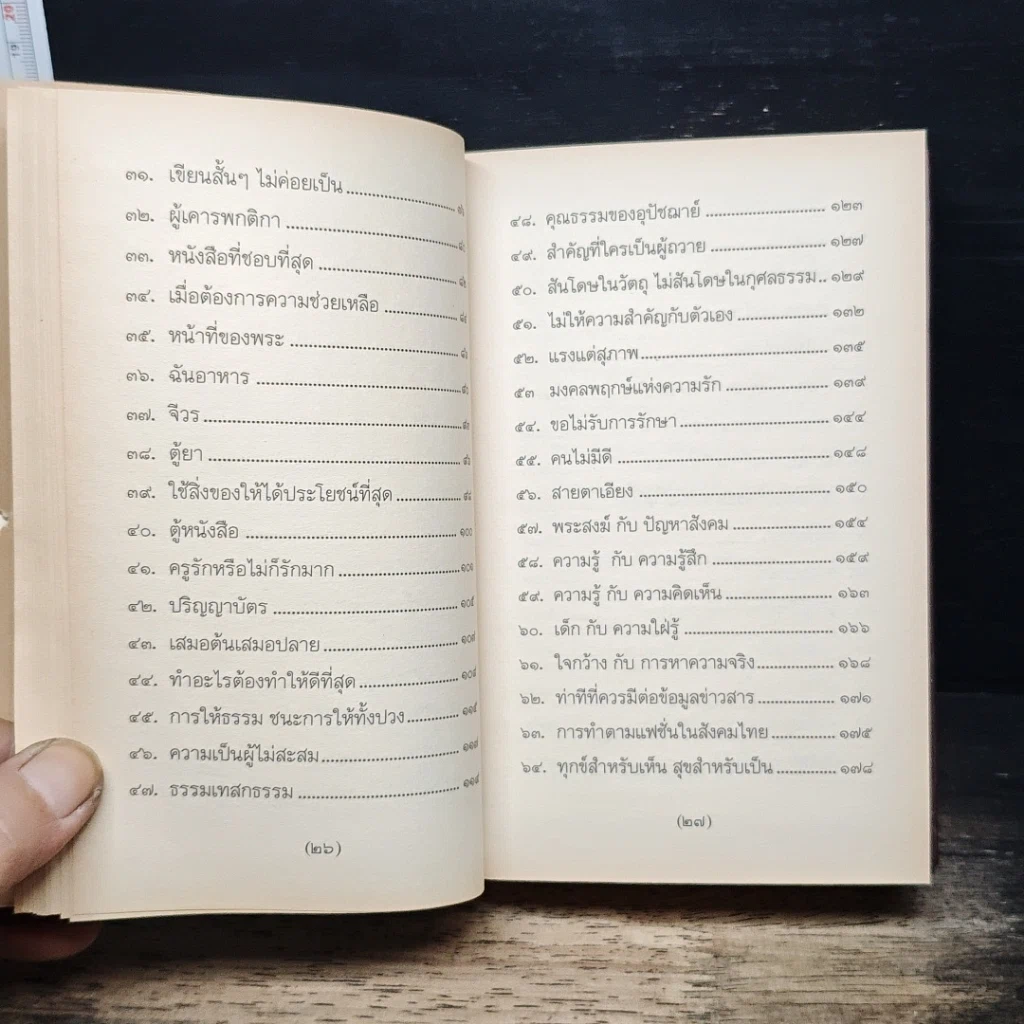 ๓๑. เขียนสั้นๆ ไม่ค่อยเป็น
๓๒. ผู้เคารพกติกา
๓๓. หนังสือที่ชอบที่สุด
๓๔. เมื่อต้องการความช่วยเหลือ
๓๕. หน้าที่ของพระ
๓๖. ฉันอาหาร
๓๗. จีวร
๓๘. ตู้ยา
๓๙. ใช้สิ่งของให้ได้ประโยชน์ที่สุด
๔๐. ตู้หนังสือ ๑๐๐
๔๑. ครูรักหรือไม่ก็รักมาก
๔๒. ปริญญาบัตร ๑๐๕
๔๓. เสมอต้นเสมอปลาย ๑๐๗
๔๔. ทำอะไรต้องทำให้ดีที่สุด
๔๕. การให้ธรรม ชนะการให้ทั้งปวง
๔๖. ความเป็นผู้ไม่สะสม ๑๑๗
๔๗. ธรรมเทสกธรรม
(๒๖)
๔๘. คุณธรรมของอุปัชฌาย์ ๑๒๓
๔๙. สำคัญที่ใครเป็นผู้ถวาย ๑๒๗
๕๐. สันโดษในวัตถุ ไม่สันโดษในกุศลธรรม.. ๑๒๙
๕๑. ไม่ให้ความสำคัญกับตัวเอง ๑๓๒
๕๒. แรงแต่สุภาพ ๑๓๕
๕๓ มงคลพฤกษ์แห่งความรัก ๑๓๙
๕๔. ขอไม่รับการรักษา ๑๔๔
๕๕. คนไม่มีดี ๑๔๘
๕๖. สายตาเอียง ๑๕๐
๕๗. พระสงฆ์ กับ ปัญหาสังคม ๑๕๔
๕๘. ความรู้ กับ ความรู้สึก ๑๕๙
๕๙. ความรู้ กับ ความคิดเห็น ๑๖๓
๖๐. เด็ก กับ ความใฝ่รู้ ๑๖๖
๖๑. ใจกว้าง กับ การหาความจริง ๑๖๘
๖๒. ท่าทีที่ควรมีต่อข้อมูลข่าวสาร ๑๗๑
๖๓. การทำตามแฟชั่นในสังคมไทย ๑๗๕
๖๔. ทุกข์สำหรับเห็น สุขสำหรับเป็น ๑๗๘
(๒๗)